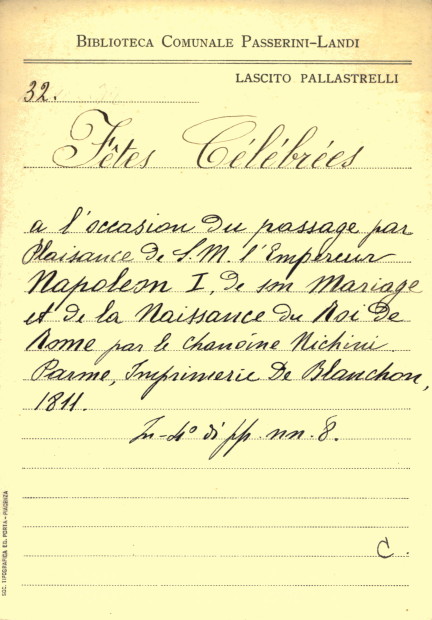 BIBLIOTECA COMUNALE PASSERINI-LANDI
LASCITO PALLASTRELLI
32.
Fêtes Célébrées
a l'occasion du passage par
Plaisance de S. M. l'Empereur
Napoleon I, de son Mariage
et de la Naissance du Roi de
Rome par le chanoine Nichini
Parme, Imprimerie De Blanchon,
1811.
In-4° di pp. nn. 8.
C.
SOC. TIPOGRAFICA ED. PORTA - PIACENZA